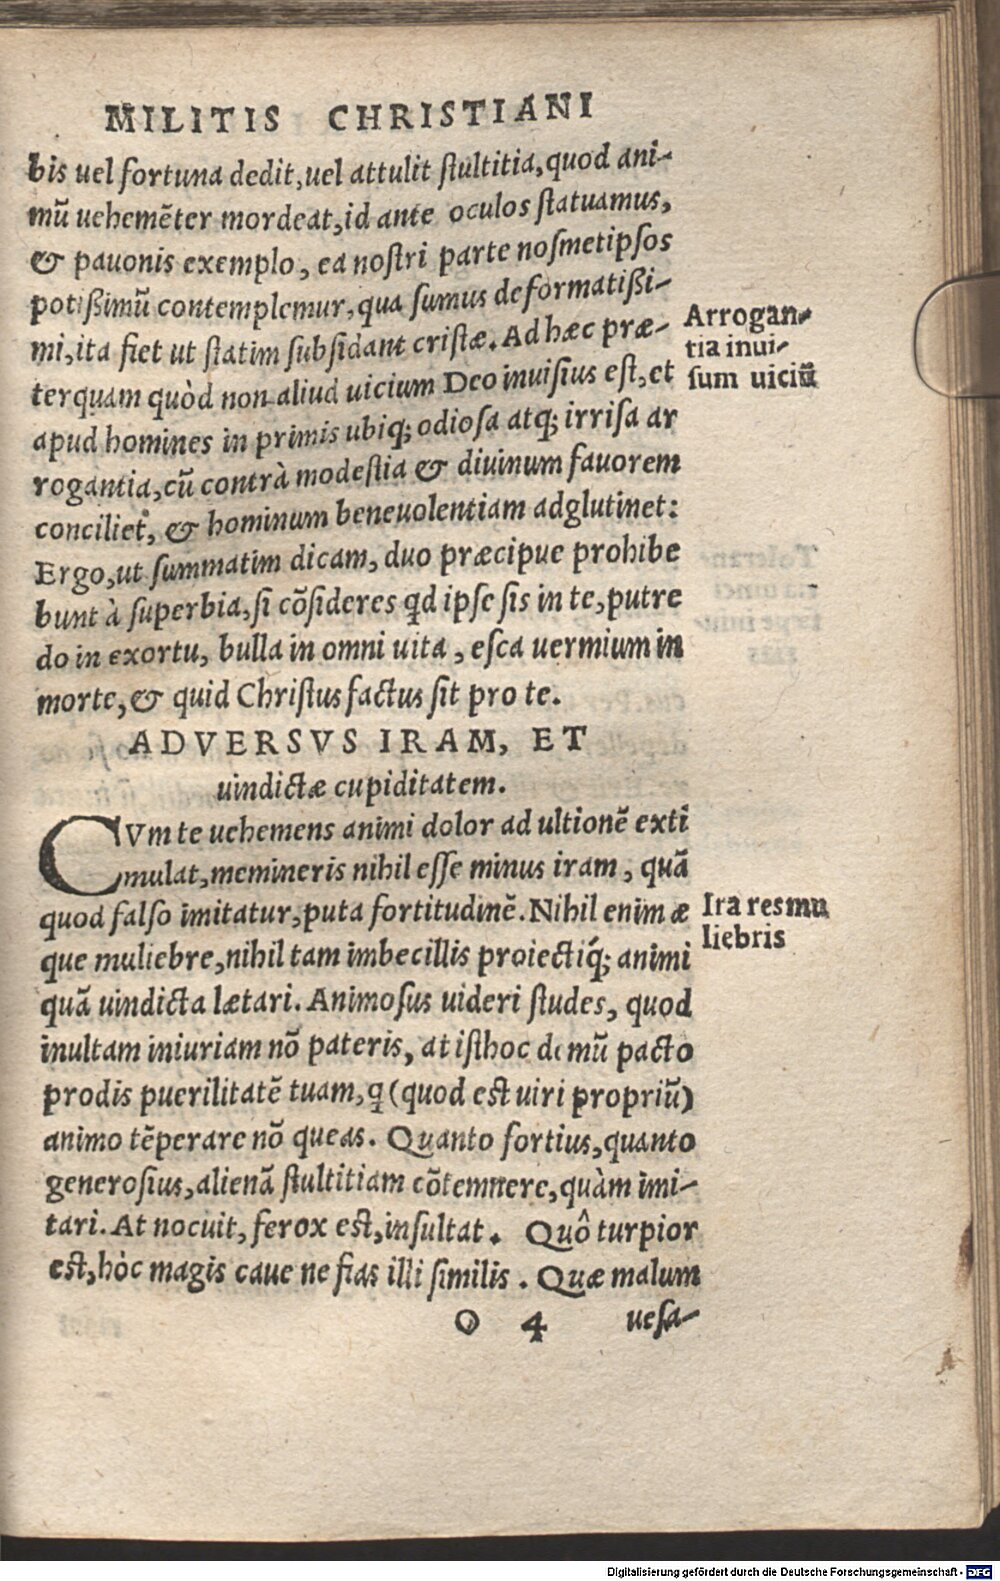 MILITIS CHRISTIANI
bis uel fortuna dedit, uel attulit ſtultitia, quod ani-
mũ uehemẽter mordeat, id ante oculos ſtatuamus,
& pauonis exemplo, ea noſtri parte noſmetipſos
potißimũ contemplemur, qua ſumus deformatißi-
mi, ita fiet ut ſtatim ſubſidant criſtæ. Ad hæc præ-
terquam quòd non aliud uicium Deo inuiſius eſt, et
apud homines in primis ubiq; odioſa atq; irriſa ar
rogantia, cũ contrà modeſtia & diuinum fauorem
conciliet, & hominum beneuolentiam adglutinet:
Ergo, ut ſummatim dicam, duo præcipue prohibe
bunt à ſuperbia, ſi cõſideres qd ipſe sis in te, putre
do in exortu, bulla in omni uita, eſca uermium in
morte, & quid Chriſtus factus ſit pro te.
Arrogan-
tia inui-
ſum uiciũ
ADVERSVS IRAM, ET
uindictæ cupiditatem.
CVm te uehemens animi dolor ad ultionẽ exti
mulat, memineris nihil eſſe minus iram, quã
quod falſo imitatur, puta fortitudinẽ. Nihil enim æ
que muliebre, nihil tam imbecillis proiectiq́; animi
quã uindicta lætari. Animoſus uideri ſtudes, quod
inultam iniuriam nõ pateris, at iſthoc demũ pacto
prodis puerilitatẽ tuam, q (quod eſt uiri propriũ)
animo tẽperare nõ queas. Quanto fortius, quanto
generoſius, alienã ſtultitiam cõtemnere, quàm imi-
tari. At nocuit, ferox eſt, inſultat. Quô turpior
eſt, hòc magis caue ne fias illi ſimilis. Quæ malum
Ira res mu
liebris
O 4 ueſa-
Digitalisierung gefördert durch die Deutsche Forschungsgemeinschaft - DFG